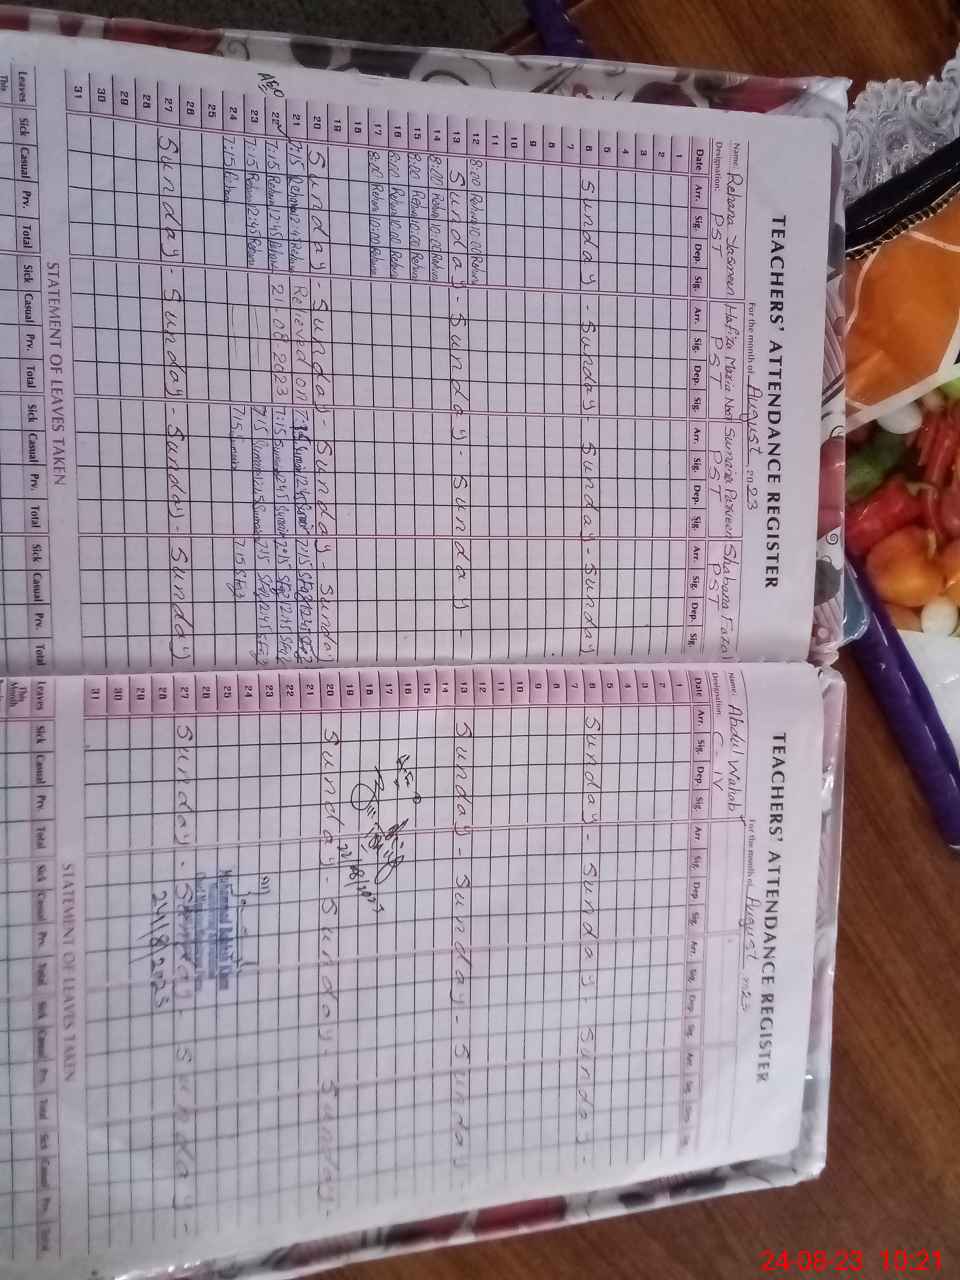 TEACHERS' ATTENDANCE REGISTER
For the month of August 2023
Name: Rehana Yasmeen Hafiza Maria Noor Sumaira Parveen Shabana Fazal
Designation: PST PST PST PST
Date Arr. Sig. Dep. Sig. Arr. Sig. Dep. Sig. Arr. Sig. Dep. Sig. Arr. Sig. Dep. Sig.
1
2
3
4
5
6 Sunday - Sunday - Sunday - Sunday
7
8
9
10
11
12 8:00 Rehan 10:00 Rehan
13 Sunday - Sunday - Sunday -
14 8:00 Rehan 10:00 Rehan
15 8:00 Rehan 10:00 Rehan
16 8:00 Rehan 10:00 Rehan
17 8:00 Rehan 10:00 Rehan
18
19
20 Sunday - Sunday - Sunday - Sunday
21 7:15 Rehan 12:45 Rehan Relieved on 7:15 12:45 7:15 12:45
AEO 22 7:15 Rehan 12:45 Rehan 21-08-2023 7:15 12:45 7:15 12:45
23 7:15 Rehan 12:45 Rehan 7:15 12:45 7:15 12:45
24 7:15 7:15 7:15
25
26
27 Sunday - Sunday - Sunday - Sunday
28
29
30
31
STATEMENT OF LEAVES TAKEN
Leaves Sick Casual Prv. Total Sick Casual Prv. Total Sick Casual Prv. Total Sick Casual Prv. Total
This
TEACHERS' ATTENDANCE REGISTER
For the month of August 2023
Name: Abdul Wahab
Designation: C-IV
Date Arr. Sig. Dep. Sig. Arr. Sig. Dep. Sig. Arr. Sig. Dep. Sig. Arr. Sig. Dep. Sig.
1
2
3
4
5
6 Sunday - Sunday - Sunday -
7
8
9
10
11
12
13 Sunday - Sunday - Sunday -
14
15
16
17
18
19 22/08/2023
20 Sunday - Sunday - Sunday -
21
22
23
24
25 Muhammad
26
27 Sunday - Sunday - Sunday -
28 24/8/2023
29
30
31
STATEMENT OF LEAVES TAKEN
Leaves Sick Casual Prv. Total Sick Casual Prv. Total Sick Casual Prv. Total Sick Casual Prv. Total
This Month
24-08-23 10:21